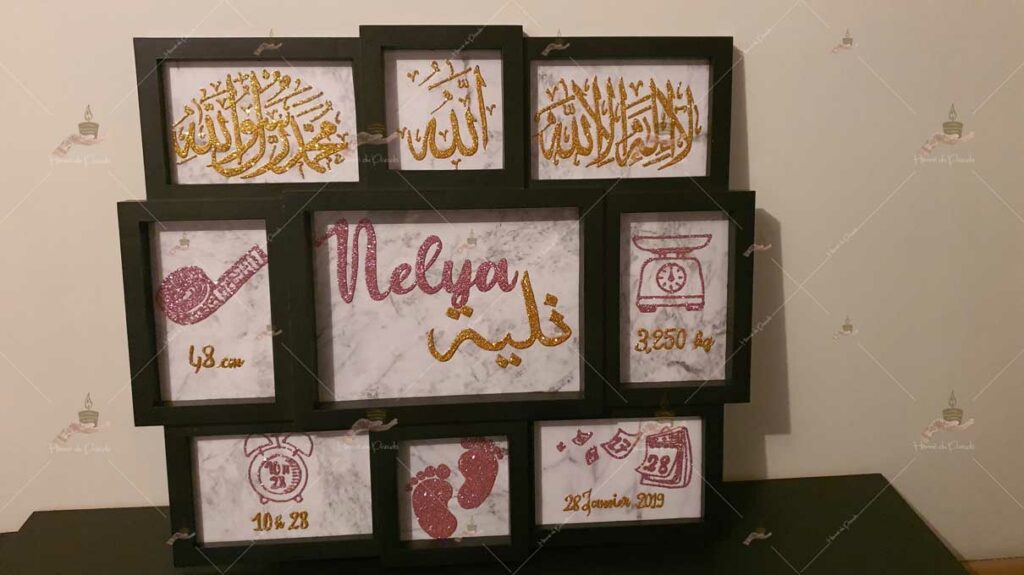 محمد رسول الله
الله
لا إله إلا الله
Nelya
نلية
48 cm
3,250 kg
10 H
28
10 h 28
28
28 Janvier 2019